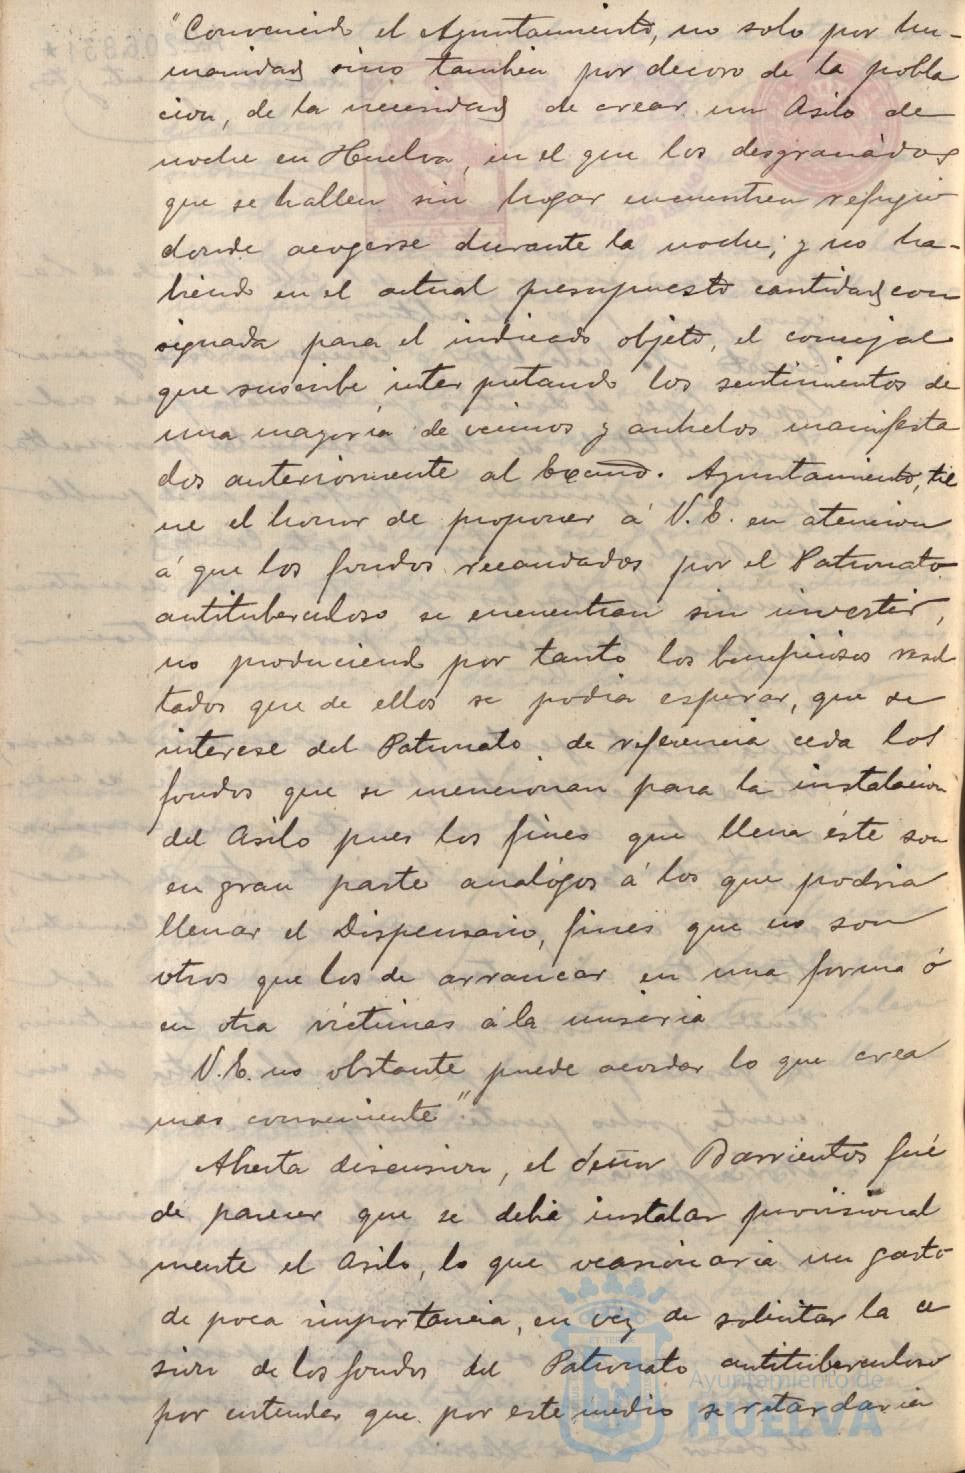 "Convencido el Ayuntamiento, no solo por hu-
manidad sino tambien por decoro de la pobla
cion, de la necesidad de crear un Asilo de
noche en Huelva, en el que los desgraciados
que se hallen sin hogar encuentren refugio
donde acogerse durante la noche; y no ha-
biendo en el actual presupuesto cantidad con
signada para el indicado objeto, el concejal
que suscribe interpretando los sentimientos de
una mayoría de vecinos y anhelos manifesta
dos anteriormente al Excmo. Ayuntamiento, tie
ne el honor de proponer á V.E. en atencion
á que los fondos recaudados por el Patronato
antituberculoso se encuentran sin invertir,
no produciendo por tanto los beneficiosos resul
tados que de ellos se podia esperar, que se
interese del Patronato de referencia ceda los
fondos que se mencionan para la instalacion
del Asilo pues los fines que llena éste son
en gran parte analógos á los que podria
llenar el Dispensario, fines que no son
otros que los de arrancar en una forma ó
en otra víctimas á la miseria
V.E. no obstante puede acordar lo que crea
mas conveniente".
Abierta discusion, el Señor Barrientos fué
de parecer que se debia instalar provisional
mente el Asilo, lo que ocasionaria un gasto
de poca importancia, en vez de solicitar la ce
sion de los fondos del Patronato antituberculoso
por entender que por este medio se retardaria
Ayuntamiento de
HUELVA